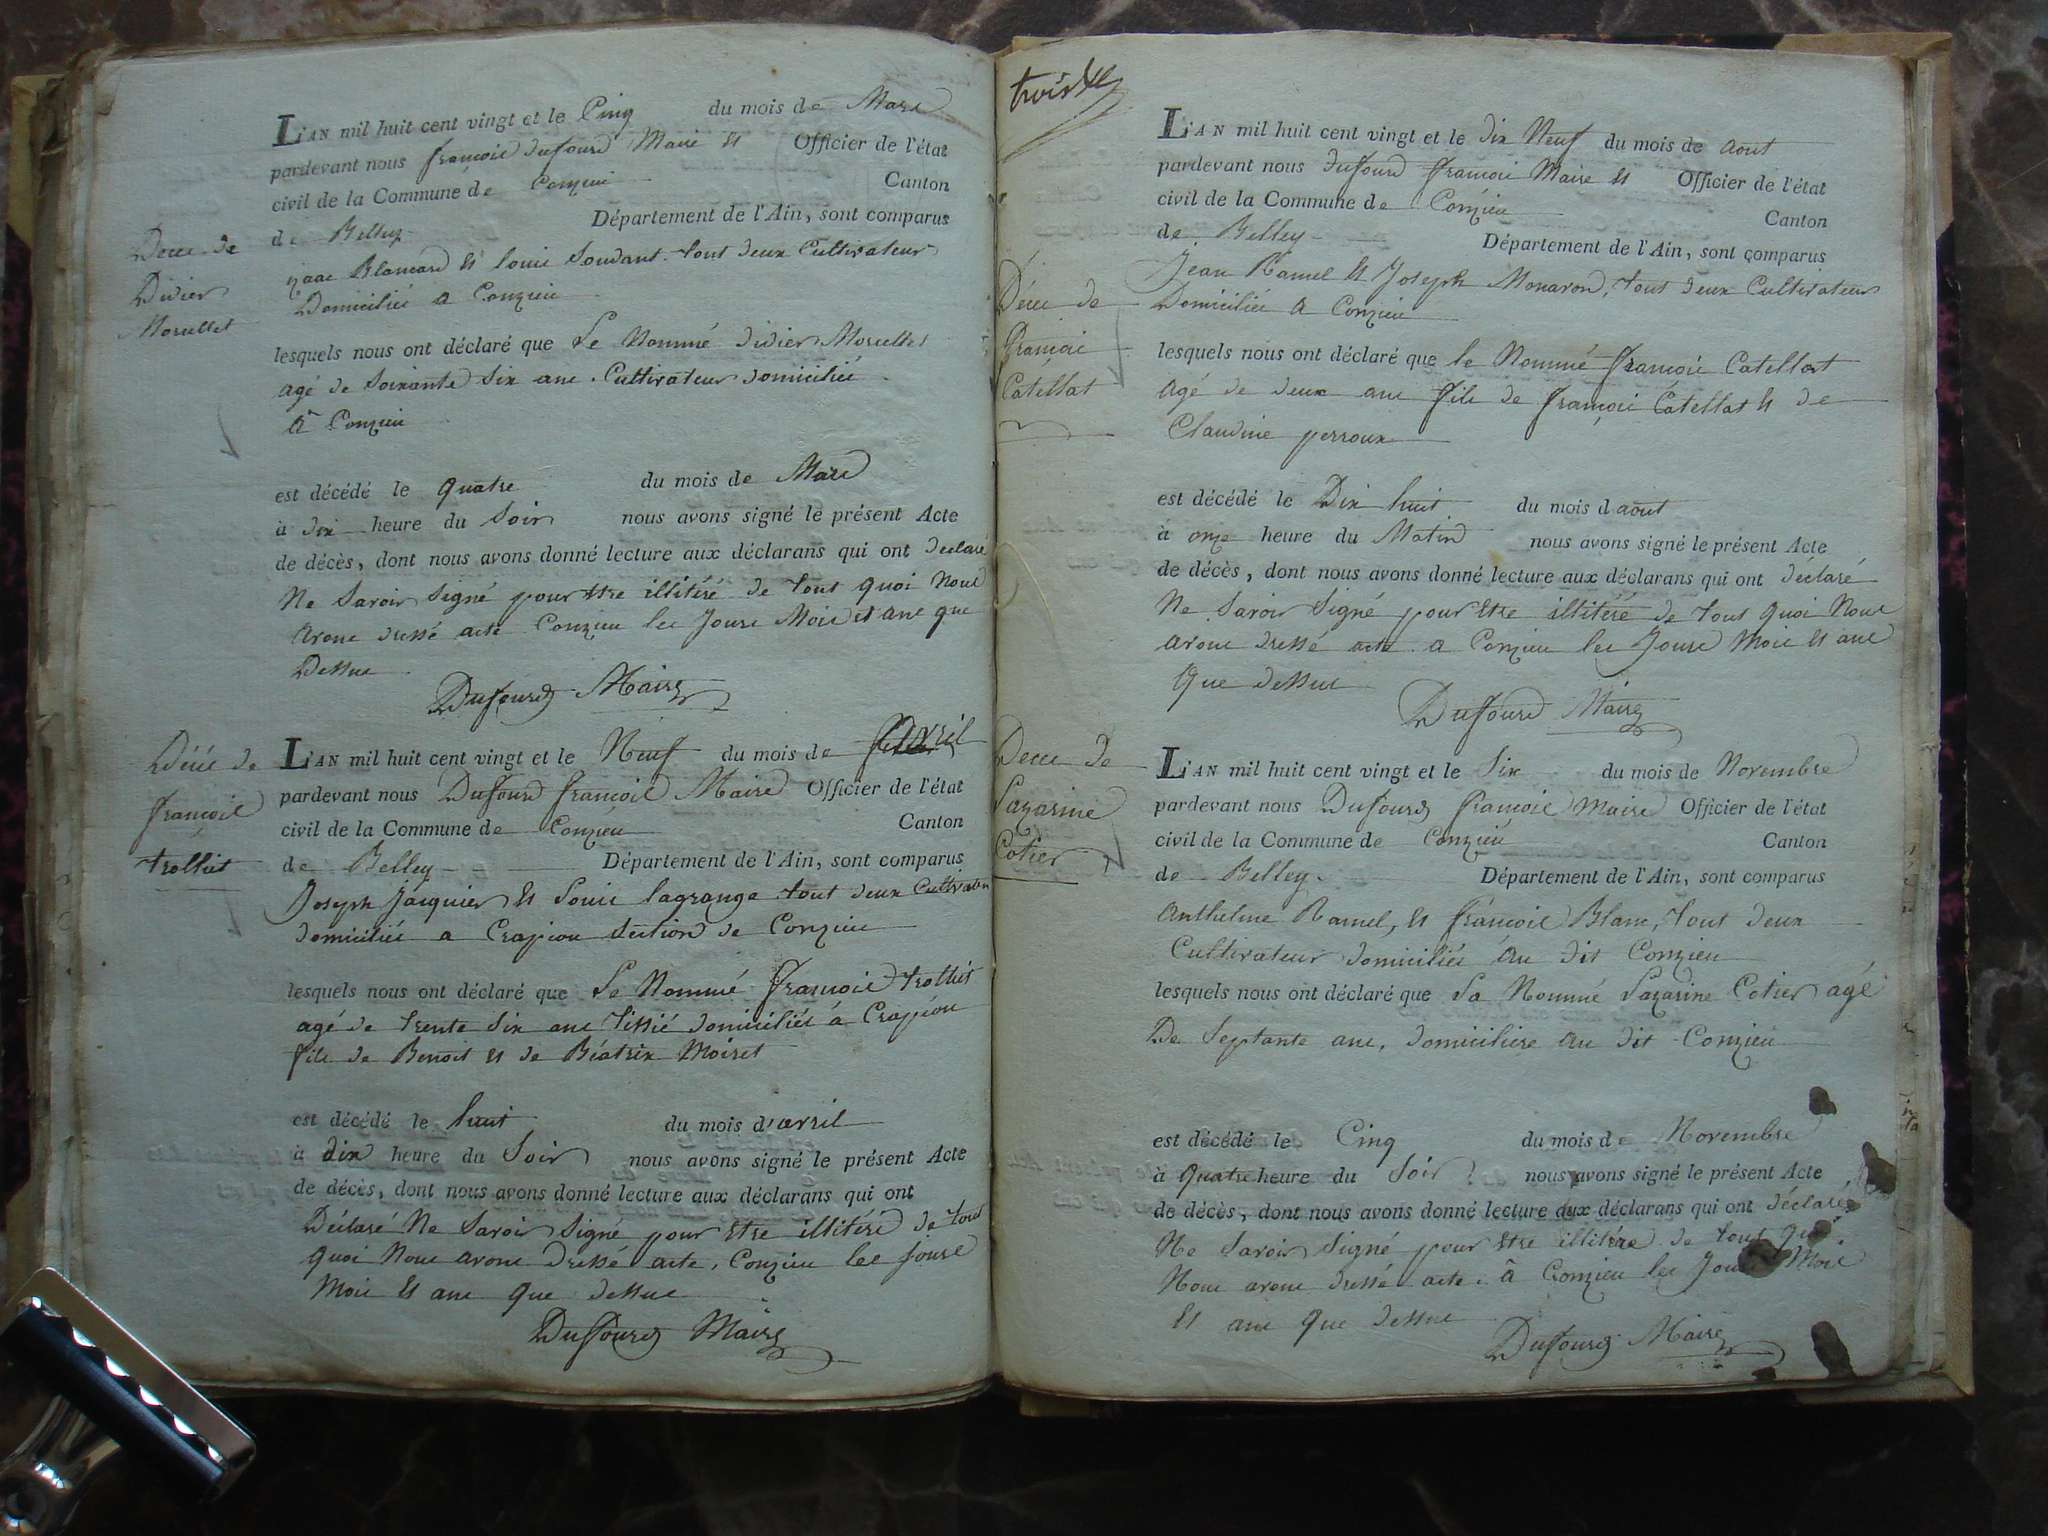 Dece de
Didier
Morellet
L'AN mil huit cent vingt et le Cinq du mois de Mars
pardevant nous francois dufourd Maire et Officier de l'état
civil de la Commune de Conzieu Canton
de Belley Département de l'Ain, sont comparus
yzaac Blancard et louis Soudant tout deux Cultivateur
Domiciliés a Conzieu
lesquels nous ont déclaré que Le Nommé didier Morellet
agé de Soixante Six ans Cultivateur domicilié
a Conzieu
est décédé le quatre du mois de Mars
à dix heure du Soir nous avons signé le présent Acte
de décès, dont nous avons donné lecture aux déclarans qui ont declaré
Ne Savoir Signé pour Etre illitéré de tout quoi Nous
avons dressé acte Conzieu les Jours Mois et ans que
Dessus
Dufourd Maire
Décés de
francois
trolliet
L'AN mil huit cent vingt et le Neuf du mois de avril
pardevant nous Dufourd francois Maire Officier de l'état
civil de la Commune de Conzieu Canton
de Belley Département de l'Ain, sont comparus
Joseph Jacquier et Louis lagrange tout deux Cultivateur
domiciliés a Crapiou Section de Conzieu
lesquels nous ont déclaré que Le Nommé francois trolliet
agé de trente Six ans tissié domiciliés à Crapiou
fils de Benoit et de Béatrix Moiret
est décédé le huit du mois d'avril
à dix heure du Soir nous avons signé le présent Acte
de décès, dont nous avons donné lecture aux déclarans qui ont
Déclaré Ne Savoir Signé pour Etre illitéré de tout
quoi Nous avons Dressé acte, Conzieu les jours
Mois et ans que dessus
Dufourd Maire
trois
Déces de
francois
Catellat
L'AN mil huit cent vingt et le dix Neuf du mois de aout
pardevant nous dufourd francois Maire et Officier de l'état
civil de la Commune de Conzieu Canton
de Belley Département de l'Ain, sont comparus
Jean Ramel et Joseph Monaron, tout deux Cultivateur
Domiciliés a Conzieu
lesquels nous ont déclaré que le Nommé francois Catellat
agé de deux ans fils de françois Catellat et de
Claudine perroux
est décédé le Dix huit du mois d aout
à onze heure du Matin nous avons signé le présent Acte
de décès, dont nous avons donné lecture aux déclarans qui ont déclaré
Ne Savoir Signé pour Etre illitéré de tout quoi Nous
avons dressé acte a Conzieu les Jours Mois et ans
Que dessus
Dufourd Maire
Deces de
Lazarine
Cotier
L'AN mil huit cent vingt et le Six du mois de Novembre
pardevant nous Dufourd francois Maire Officier de l'état
civil de la Commune de Conzieu Canton
de Belley Département de l'Ain, sont comparus
Anthelme Ramel, et francois Blanc, tout deux
Cultivateur domiciliés au dit Conzieu
lesquels nous ont déclaré que La Nommé Lazarine Cotier agé
De Septante ans, domiciliere au dit Conzieu
est décédé le Cinq du mois de Novembre
à quatre heure du Soir nous avons signé le présent Acte
de décès, dont nous avons donné lecture aux déclarans qui ont déclaré
Ne Savoir Signé pour Etre illitéré de tout quoi
Nous avons dressé acte à Conzieu les Jours Mois
Et ans que dessus
Dufourd Maire